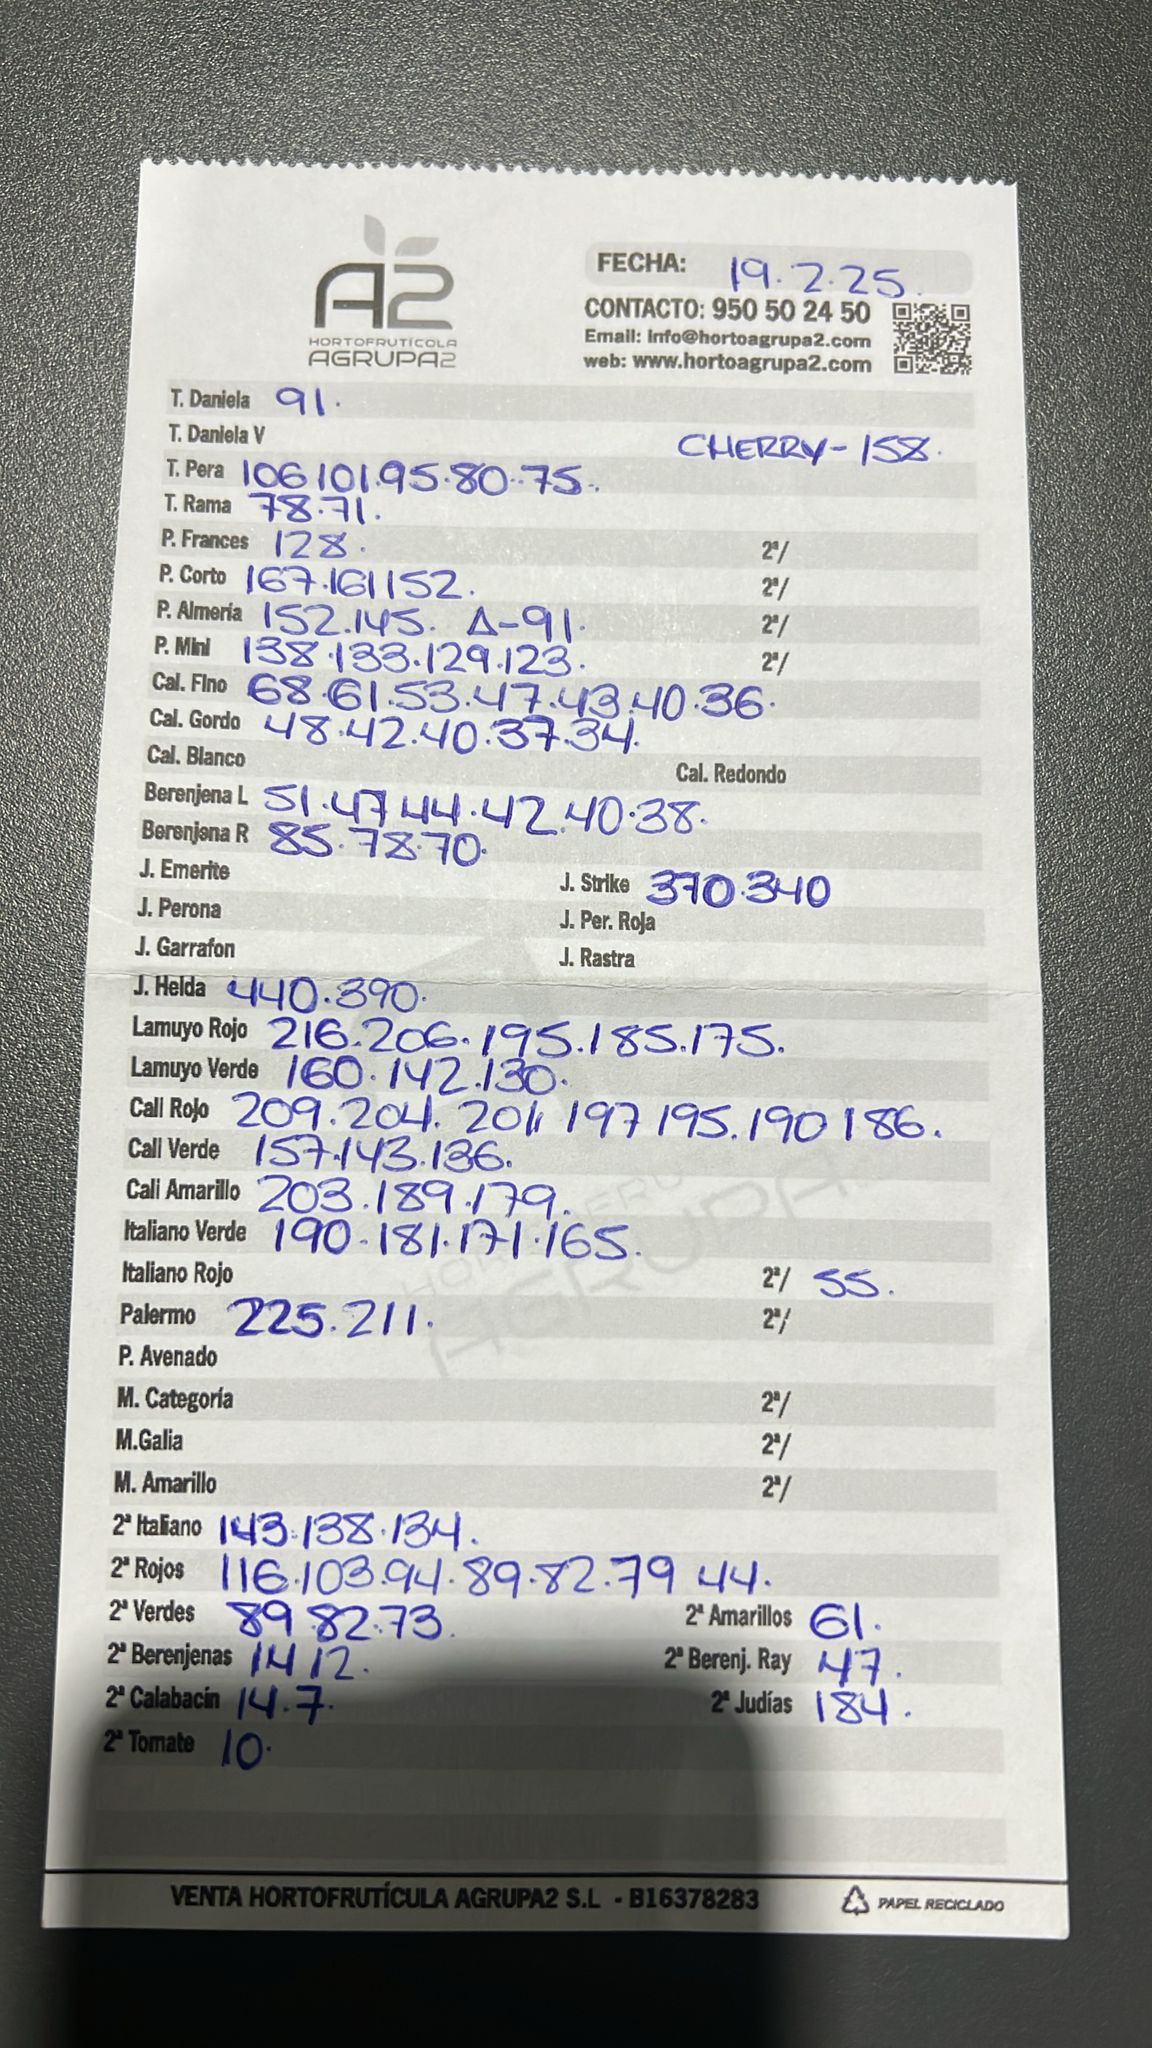 A2
HORTOFRUTÍCOLA
AGRUPA2
FECHA: 19.2.25.
CONTACTO: 950 50 24 50
Email: info@hortoagrupa2.com
web: www.hortoagrupa2.com
T. Daniela 91.
T. Daniela V
CHERRY-158.
T. Pera 106 101.95.80.75.
T. Rama 78.71.
P. Frances 128. 2ª/
P. Corto 167.161 152. 2ª/
P. Almería 152.145. Δ-91. 2ª/
P. Mini 138.133.129.123. 2ª/
Cal. Fino 68.61.53.47.43.40.36.
Cal. Gordo 48.42.40.37.34.
Cal. Blanco Cal. Redondo
Berenjena L 51.47 44.42.40.38.
Berenjena R 85.78.70.
J. Emerite J. Strike 370.340
J. Perona J. Per. Roja
J. Garrafon J. Rastra
J. Helda 440.390.
Lamuyo Rojo 216.206.195.185.175.
Lamuyo Verde 160.142.130.
Cali Rojo 209.204.201. 197 195.190 186.
Cali Verde 157.143.136.
Cali Amarillo 203.189.179.
Italiano Verde 190.181.171.165.
Italiano Rojo 2ª/ 55.
Palermo 225.211. 2ª/
P. Avenado
M. Categoría 2ª/
M.Galia 2ª/
M. Amarillo 2ª/
2ª Italiano 143.138.134.
2ª Rojos 116.103.94.89.82.79 44.
2ª Verdes 89 82.73. 2ª Amarillos 61.
2ª Berenjenas 14 12. 2ª Berenj. Ray 47.
2ª Calabacín 14.7. 2ª Judías 184.
2ª Tomate 10.
VENTA HORTOFRUTÍCULA AGRUPA2 S.L - B16378283 PAPEL RECICLADO